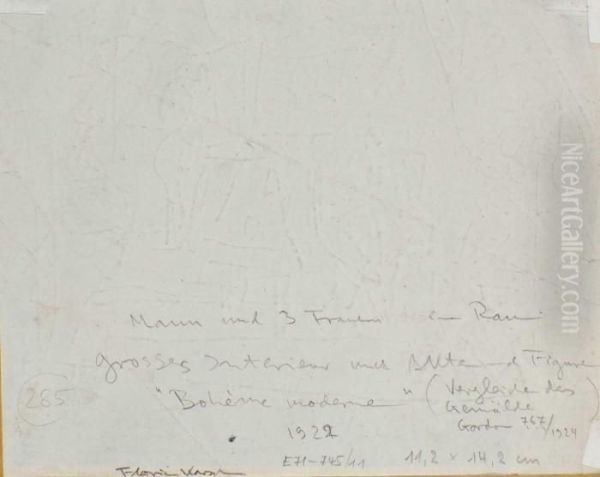 Mann und 3 Frauen Raum
grosses Interieur und Figure
285
"Bohème moderne" (Vergleiche des
Gemälde
Gordon 767/1924
1922
E71-745/11 11,2 × 14,2 cm
Florian Karsch
NiceArtGallery.com